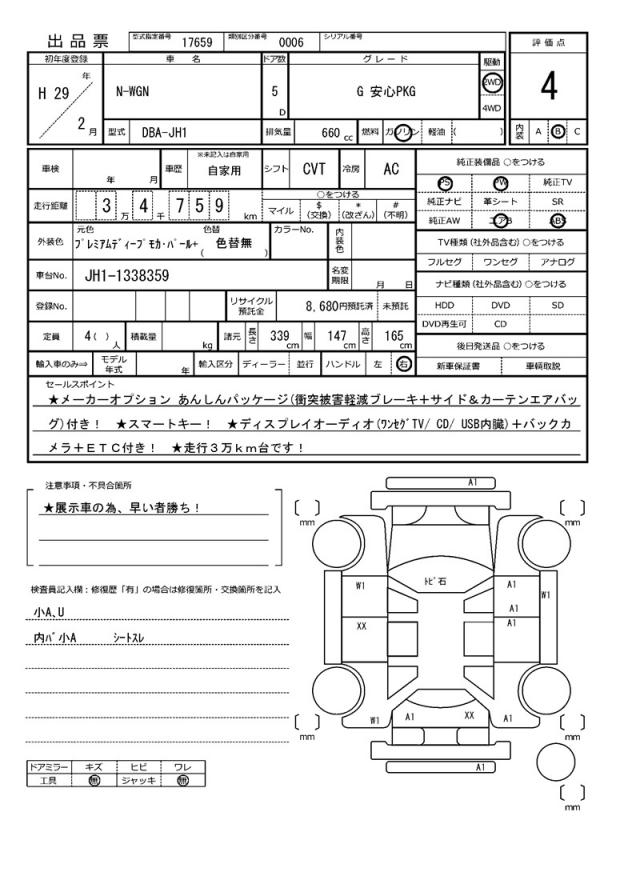 出品票 型式指定番号 17659 類別区分番号 0006 シリアル番号
評価点
初年度登録 車名 ドア数 グレード 駆動
H 29 年 N-WGN 5 D G 安心PKG 2WD 4WD 4
2 月 型式 DBA-JH1 排気量 660 cc 燃料 ガソリン 軽油 ( ) 内装 A B C
車検 年 月 車歴 ※未記入は自家用 自家用 シフト CVT 冷房 AC 純正装備品 ○をつける
PS PW 純正TV
走行距離 3 万 4 千 7 5 9 km ○をつける 純正ナビ 革シート SR
マイル $ (交換) * (改ざん) # (不明) 純正AW エアB ABS
外装色 元色 プレミアムディープモカ・パール+ 色替 ( 色替無 ) カラーNo. 内装色 TV種類 (社外品含む) ○をつける
フルセグ ワンセグ アナログ
車台No. JH1-1338359 名変期限 月 日 ナビ種類 (社外品含む) ○をつける
登録No. リサイクル預託金 8,680円預託済 未預託 HDD DVD SD
DVD再生可 CD
定員 4( ) 人 積載量 kg 諸元 長さ 339 cm 幅 147 cm 高さ 165 cm 後日発送品 ○をつける
輸入車のみ⇒ モデル年式 年 輸入区分 ディーラー 並行 ハンドル 左 右 新車保証書 車輌取説
セールスポイント
★メーカーオプション あんしんパッケージ(衝突被害軽減ブレーキ+サイド&カーテンエアバッ
グ)付き! ★スマートキー! ★ディスプレイオーディオ(ワンセグTV/ CD/ USB内臓)+バックカ
メラ+ETC付き! ★走行3万km台です!
注意事項・不具合箇所
★展示車の為、早い者勝ち!
検査員記入欄:修復歴「有」の場合は修復箇所・交換箇所を記入
小A、U
内バ小A シートスレ
ドアミラー キズ ヒビ ワレ
工具 無 ジャッキ 無
A1
mm mm
トビ石
W1 A1 W1
A1
XX A1
W1 A1 XX A1
mm mm
A1
mm